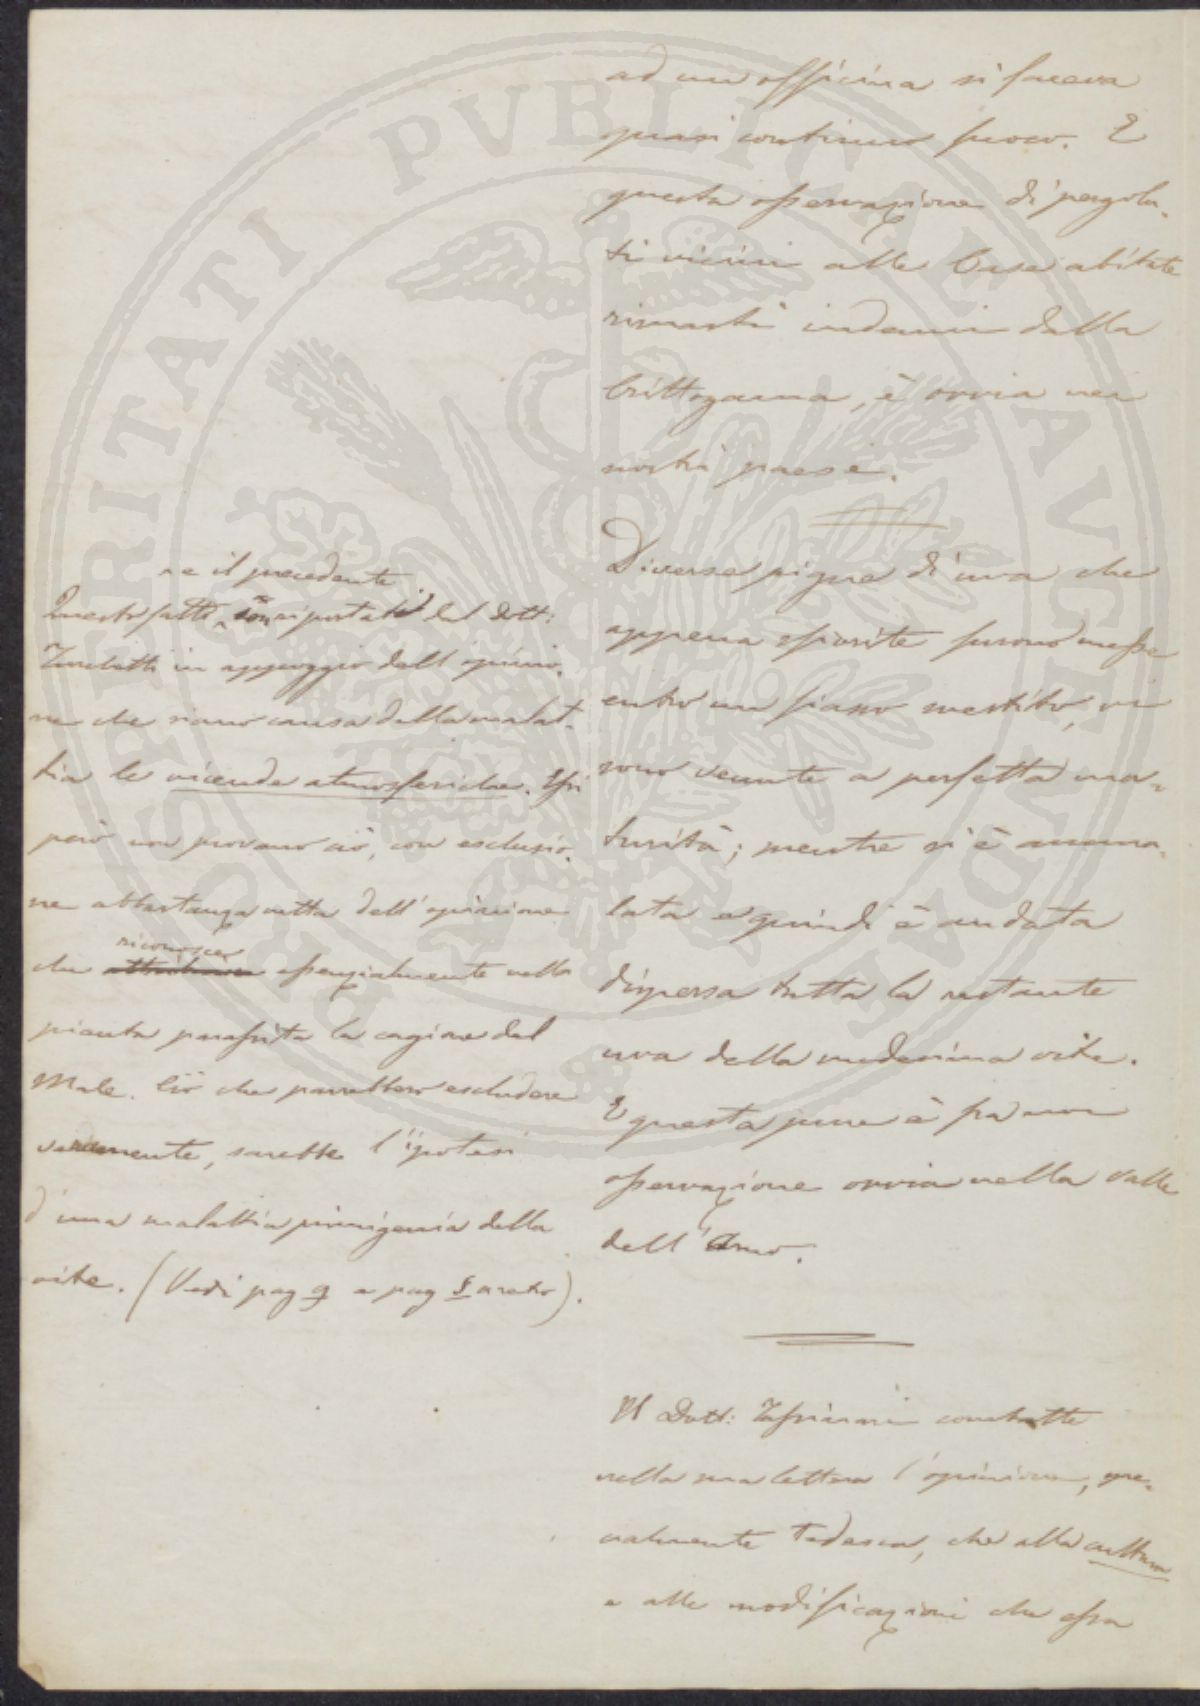 ad un officina si faceva
quasi continuo fuoco. E
questa osservazione di pergola-
ti vicini alle Case abitate
rimasti indenni dalla
Crittogama, è ovvia nei
nostri paesi.
Diverse pigne d'uva che
appena sfiorite furono messe
entro un fiasco vestito, vi
sono venute a perfetta ma-
turità; mentre si è amma-
lata e quindi è andata
dispersa tutta la restante
uva della medesima vite.
E questa pure è fra noi
osservazione ovvia nella valle
dell'Arno.
Il Dott: combatte
nella sua lettera l'opinione,
Tedesca, che alla cultura
e alle modificazioni che essa
e il precedente
Questi fatti, son riportati dal Dott:
in appoggio dell'opinio-
ne che siano causa della malat-
tia le vicende atmosferiche. Essi
però non provano ciò, con esclusio-
ne abbastanza netta dell'opinione
riconosce
che essenzialmente nella
pianta parassita la cagione del
Male. Ciò che parrebbero escludere
veramente, sarebbe l'ipotesi
d'una malattia primigenia della
vite. (Vedi pag 9 e pag retro).
PROSPERITATI PVBLICAE AVGENDAE